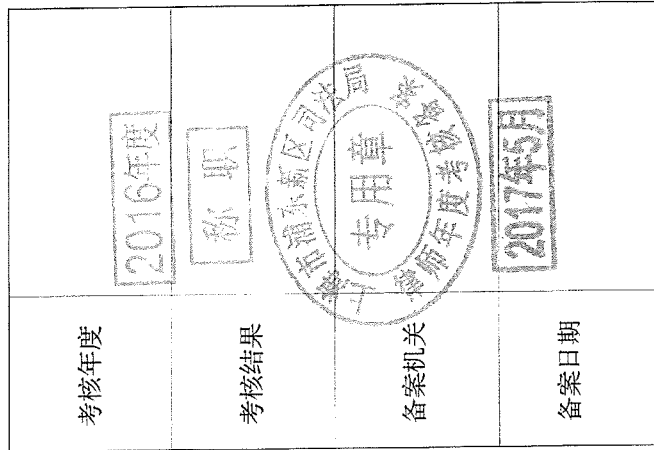 考核年度
2016年度
考核结果
称职
备案机关
上海市浦东新区司法局
专用章
律师年度考核备案
备案日期
2017年5月